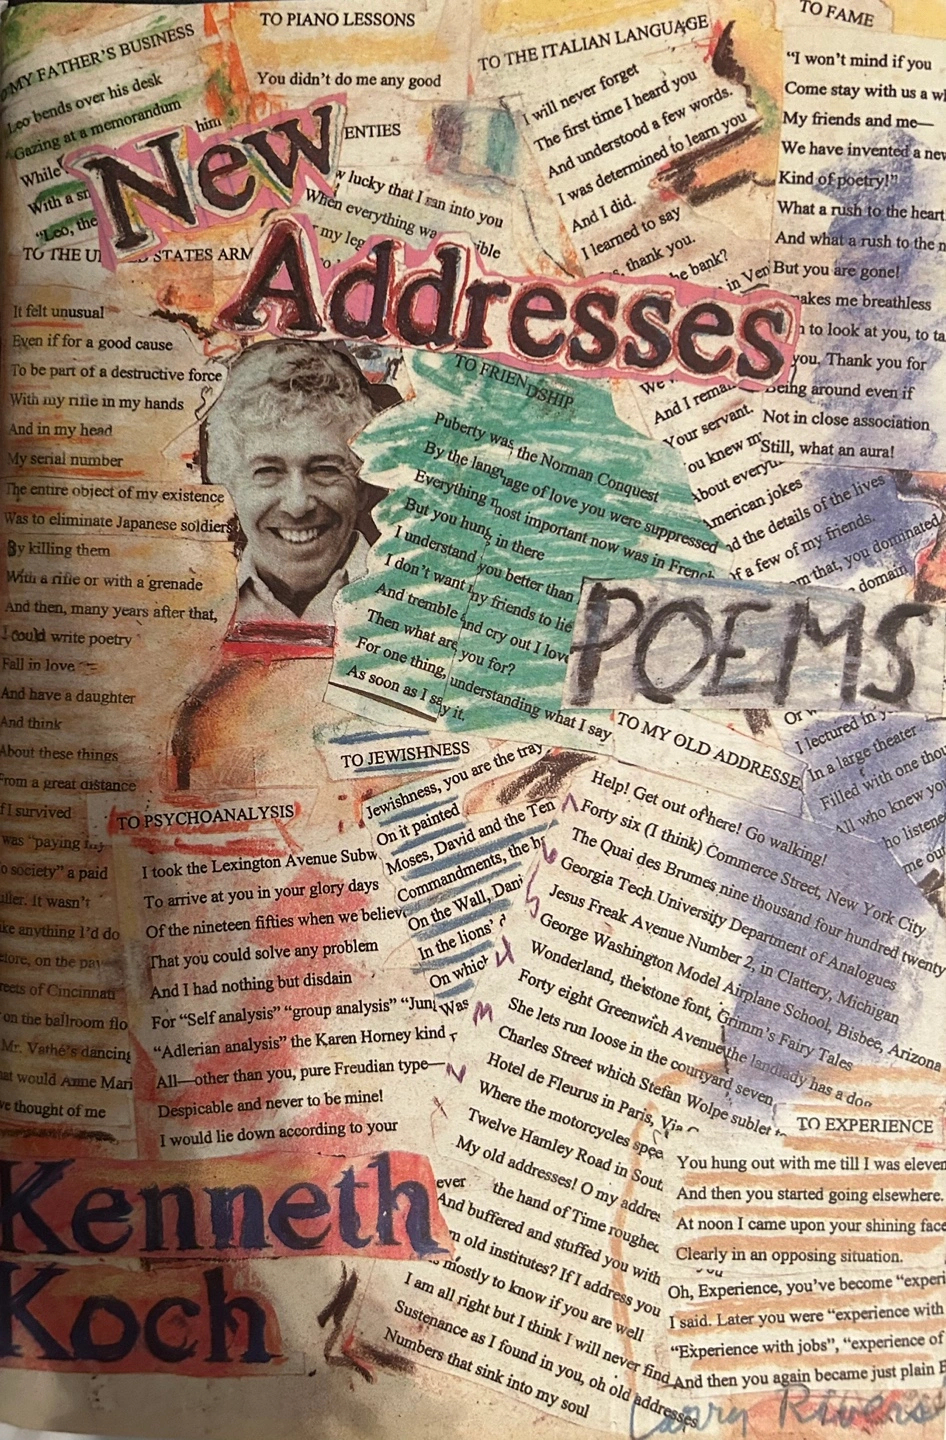 MY FATHER'S BUSINESS
Leo bends over his desk
Gazing at a memorandum
While him
With a
"Leo, the
TO PIANO LESSONS
You didn't do me any good
ENTIES
lucky that I ran into you
When everything
my leg
TO THE ITALIAN LANGUAGE
I will never forget
The first time I heard you
And understood a few words.
I was determined to learn you
And I did.
I learned to say
thank you.
the bank?
in Ven
TO FAME
"I won't mind if you
Come stay with us a
My friends and me—
We have invented a new
Kind of poetry!"
What a rush to the heart
And what a rush to the
But you are gone!
makes me breathless
to look at you, to
you. Thank you for
Being around even if
Not in close association
Still, what an aura!
New
Addresses
TO THE UNITED STATES ARM
It felt unusual
Even if for a good cause
To be part of a destructive force
With my rifle in my hands
And in my head
My serial number
The entire object of my existence
Was to eliminate Japanese soldiers
By killing them
With a rifle or with a grenade
And then, many years after that,
I could write poetry
Fall in love
And have a daughter
And think
About these things
From a great distance
If I survived
was "paying my
o society" a paid
killer. It wasn't
like anything I'd do
before, on the pav
streets of Cincinnati
on the ballroom flo
Mr. Vathé's dancing
hat would Anne Mari
ve thought of me
TO FRIENDSHIP
Puberty was the Norman Conquest
By the language of love you were suppressed
Everything most important now was in French
But you hung in there
I understand you better than
I don't want my friends to lie
And tremble and cry out I love
Then what are you for?
For one thing, understanding what I say
As soon as I say it.
We
And I remain
Your servant.
You knew my
About everyth
American jokes
and the details of the lives
of a few of my friends.
om that, you dominated
domain
POEMS
Or
I lectured in
In a large theater
Filled with one thou
All who knew you
ho listene
me out
TO JEWISHNESS
Jewishness, you are the tray
On it painted
Moses, David and the Ten
Commandments, the
On the Wall, Dani
In the lions'
On which
Was
TO PSYCHOANALYSIS
I took the Lexington Avenue Subw
To arrive at you in your glory days
Of the nineteen fifties when we believe
That you could solve any problem
And I had nothing but disdain
For "Self analysis" "group analysis" "Jung
"Adlerian analysis" the Karen Horney kind
All—other than you, pure Freudian type—
Despicable and never to be mine!
I would lie down according to your
TO MY OLD ADDRESSE
Help! Get out of here! Go walking!
Forty six (I think) Commerce Street, New York City
The Quai des Brumes nine thousand four hundred twenty
Georgia Tech University Department of Analogues
Jesus Freak Avenue Number 2, in Clattery, Michigan
George Washington Model Airplane School, Bisbee, Arizona
Wonderland, the stone font, Grimm's Fairy Tales
Forty eight Greenwich Avenue the landlady has a dog
She lets run loose in the courtyard seven
Charles Street which Stefan Wolpe sublet to
Hotel de Fleurus in Paris, Via
Where the motorcycles spee
Twelve Hamley Road in Sout
My old addresses! O my addre
ever the hand of Time roughed
And buffered and stuffed you with
m old institutes? If I address you
mostly to know if you are well
I am all right but I think I will never find
Sustenance as I found in you, oh old addresses
Numbers that sink into my soul
TO EXPERIENCE
You hung out with me till I was eleven
And then you started going elsewhere.
At noon I came upon your shining face
Clearly in an opposing situation.
Oh, Experience, you've become "experi
I said. Later you were "experience with
"Experience with jobs", "experience of
And then you again became just plain E
Kenneth
Koch
Larry Rivers